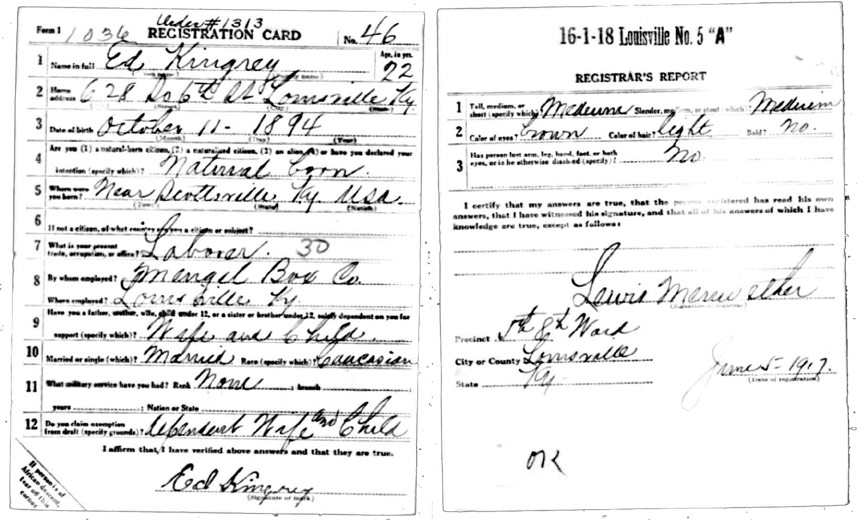 Order # 1313
Form 1 1036 REGISTRATION CARD No. 46
1 Name in full Ed Kingrey Age, in yrs. 22
2 Home address 628 So 6th St Louisville Ky
3 Date of birth October 11 - 1894
(Month) (Day) (Year)
4 Are you (1) a natural-born citizen, (2) a naturalized citizen, (3) an alien, (4) or have you declared your
intention (specify which)? Natural born.
5 Where were you born? Near Scottsville Ky USA
(Town) (State) (Nation)
6 If not a citizen, of what country are you a citizen or subject?
7 What is your present trade, occupation, or office? Laborer. 30
8 By whom employed? Mengel Box Co.
Where employed? Louisville Ky
9 Have you a father, mother, wife, child under 12, or a sister or brother under 12, solely dependent on you for
support (specify which)? Wife and Child
10 Married or single (which)? Married Race (specify which)? Caucasian
11 What military service have you had? Rank None ; branch
years ; Nation or State
12 Do you claim exemption from draft (specify grounds)? Dependent Wife and Child
I affirm that I have verified above answers and that they are true.
Ed Kingrey
(Signature or mark)
If person is of
African descent,
tear off this
corner
16-1-18 Louisville No. 5 "A"
REGISTRAR'S REPORT
1 Tall, medium, or short (specify which)? Medium Slender, medium, or stout (which)? Medium
2 Color of eyes? brown Color of hair? light Bald? No.
3 Has person lost arm, leg, hand, foot, or both
eyes, or is he otherwise disabled (specify)? No.
I certify that my answers are true, that the person registered has read his own
answers, that I have witnessed his signature, and that all of his answers of which I have
knowledge are true, except as follows:
Lewis
Precinct 5th 8th Ward
City or County Louisville
State Ky.
June 5 - 1917.
(Date of registration)
OK